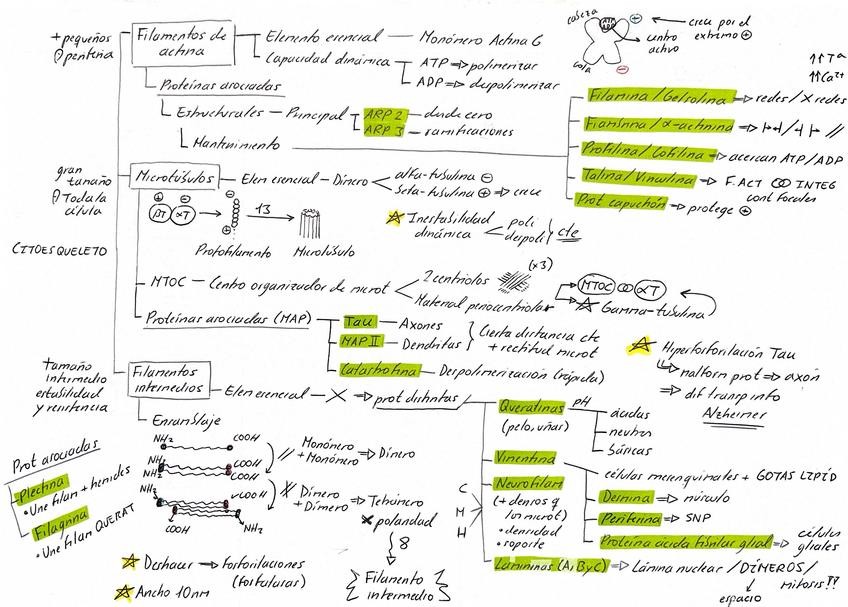 + pequeños
θ periferia
Filamentos de
actina
Elemento esencial — Monómero Actina G
Capacidad dinámica
ATP ⇒ polimerizar
ADP ⇒ despolimerizar
cabeza
ATP
ADP
cola
+
−
crece por el
extremo +
centro
activo
↑↑Tª
↑↑Ca2+
Proteínas asociadas
Estructurales — Principal
ARP 2 — desde cero
ARP 3 — ramificaciones
Mantenimiento
Filamina / Gelsolina ⇒ redes / X redes
Fimbrina / α-actinina ⇒
Profilina / Cofilina ⇒ acercan ATP/ADP
Talina / Vinculina → F. ACT INTEG
cont focales
Prot capuchón → protege +
CITOESQUELETO
gran
tamaño
θ Toda la
célula
Microtúbulos — Elem esencial — Dímero
alfa-tubulina −
beta-tubulina + ⇒ crece
+ −
βT αT
−
+
13
Protofilamento
Microtúbulo
Inestabilidad
dinámica
poli
despoli
cte
MTOC — Centro organizador de microt
2 centriolos
(x3)
Material pericentriolar
MTOC αT
Gamma-tubulina
Proteínas asociadas (MAP)
Tau — Axones
MAP II — Dendritas
Cierta distancia cte
+ rectitud microt
Catastrofina — Despolimerización (rápida)
Hiperfosforilación Tau
malform prot ⇒ axón
⇒ dif transp info
Alzheimer
tamaño
intermedio
estabilidad
y resistencia
Filamentos
intermedios
Elem esencial — X ⇒ prot distintas
Ensamblaje
NH2 COOH
NH2 COOH
NH2 COOH
NH2 COOH
COOH NH2
// Monómero
+ Monómero ⇒ Dímero
Dímero
+ Dímero ⇒ Tetrámero
X polaridad
8
Filamento
intermedio
Deshacer → fosforilaciones
(fosfatasas)
Ancho 10nm
Prot asociadas
Plectina
• Une filam + hemides
Filagrina
• Une filam QUERAT
C
M
H
Queratinas
(pelo, uñas)
pH
ácidas
neutras
básicas
Vimentina
células mesenquimales + GOTAS LIPID
Neurofilam
(+ densos q
los microt)
• densidad
• soporte
Desmina ⇒ músculo
Periferina ⇒ SNP
Proteína ácida fibrilar glial ⇒ células
gliales
Lamininas (A, B y C) ⇒ Lámina nuclear / DÍMEROS /
mitosis??
espacio